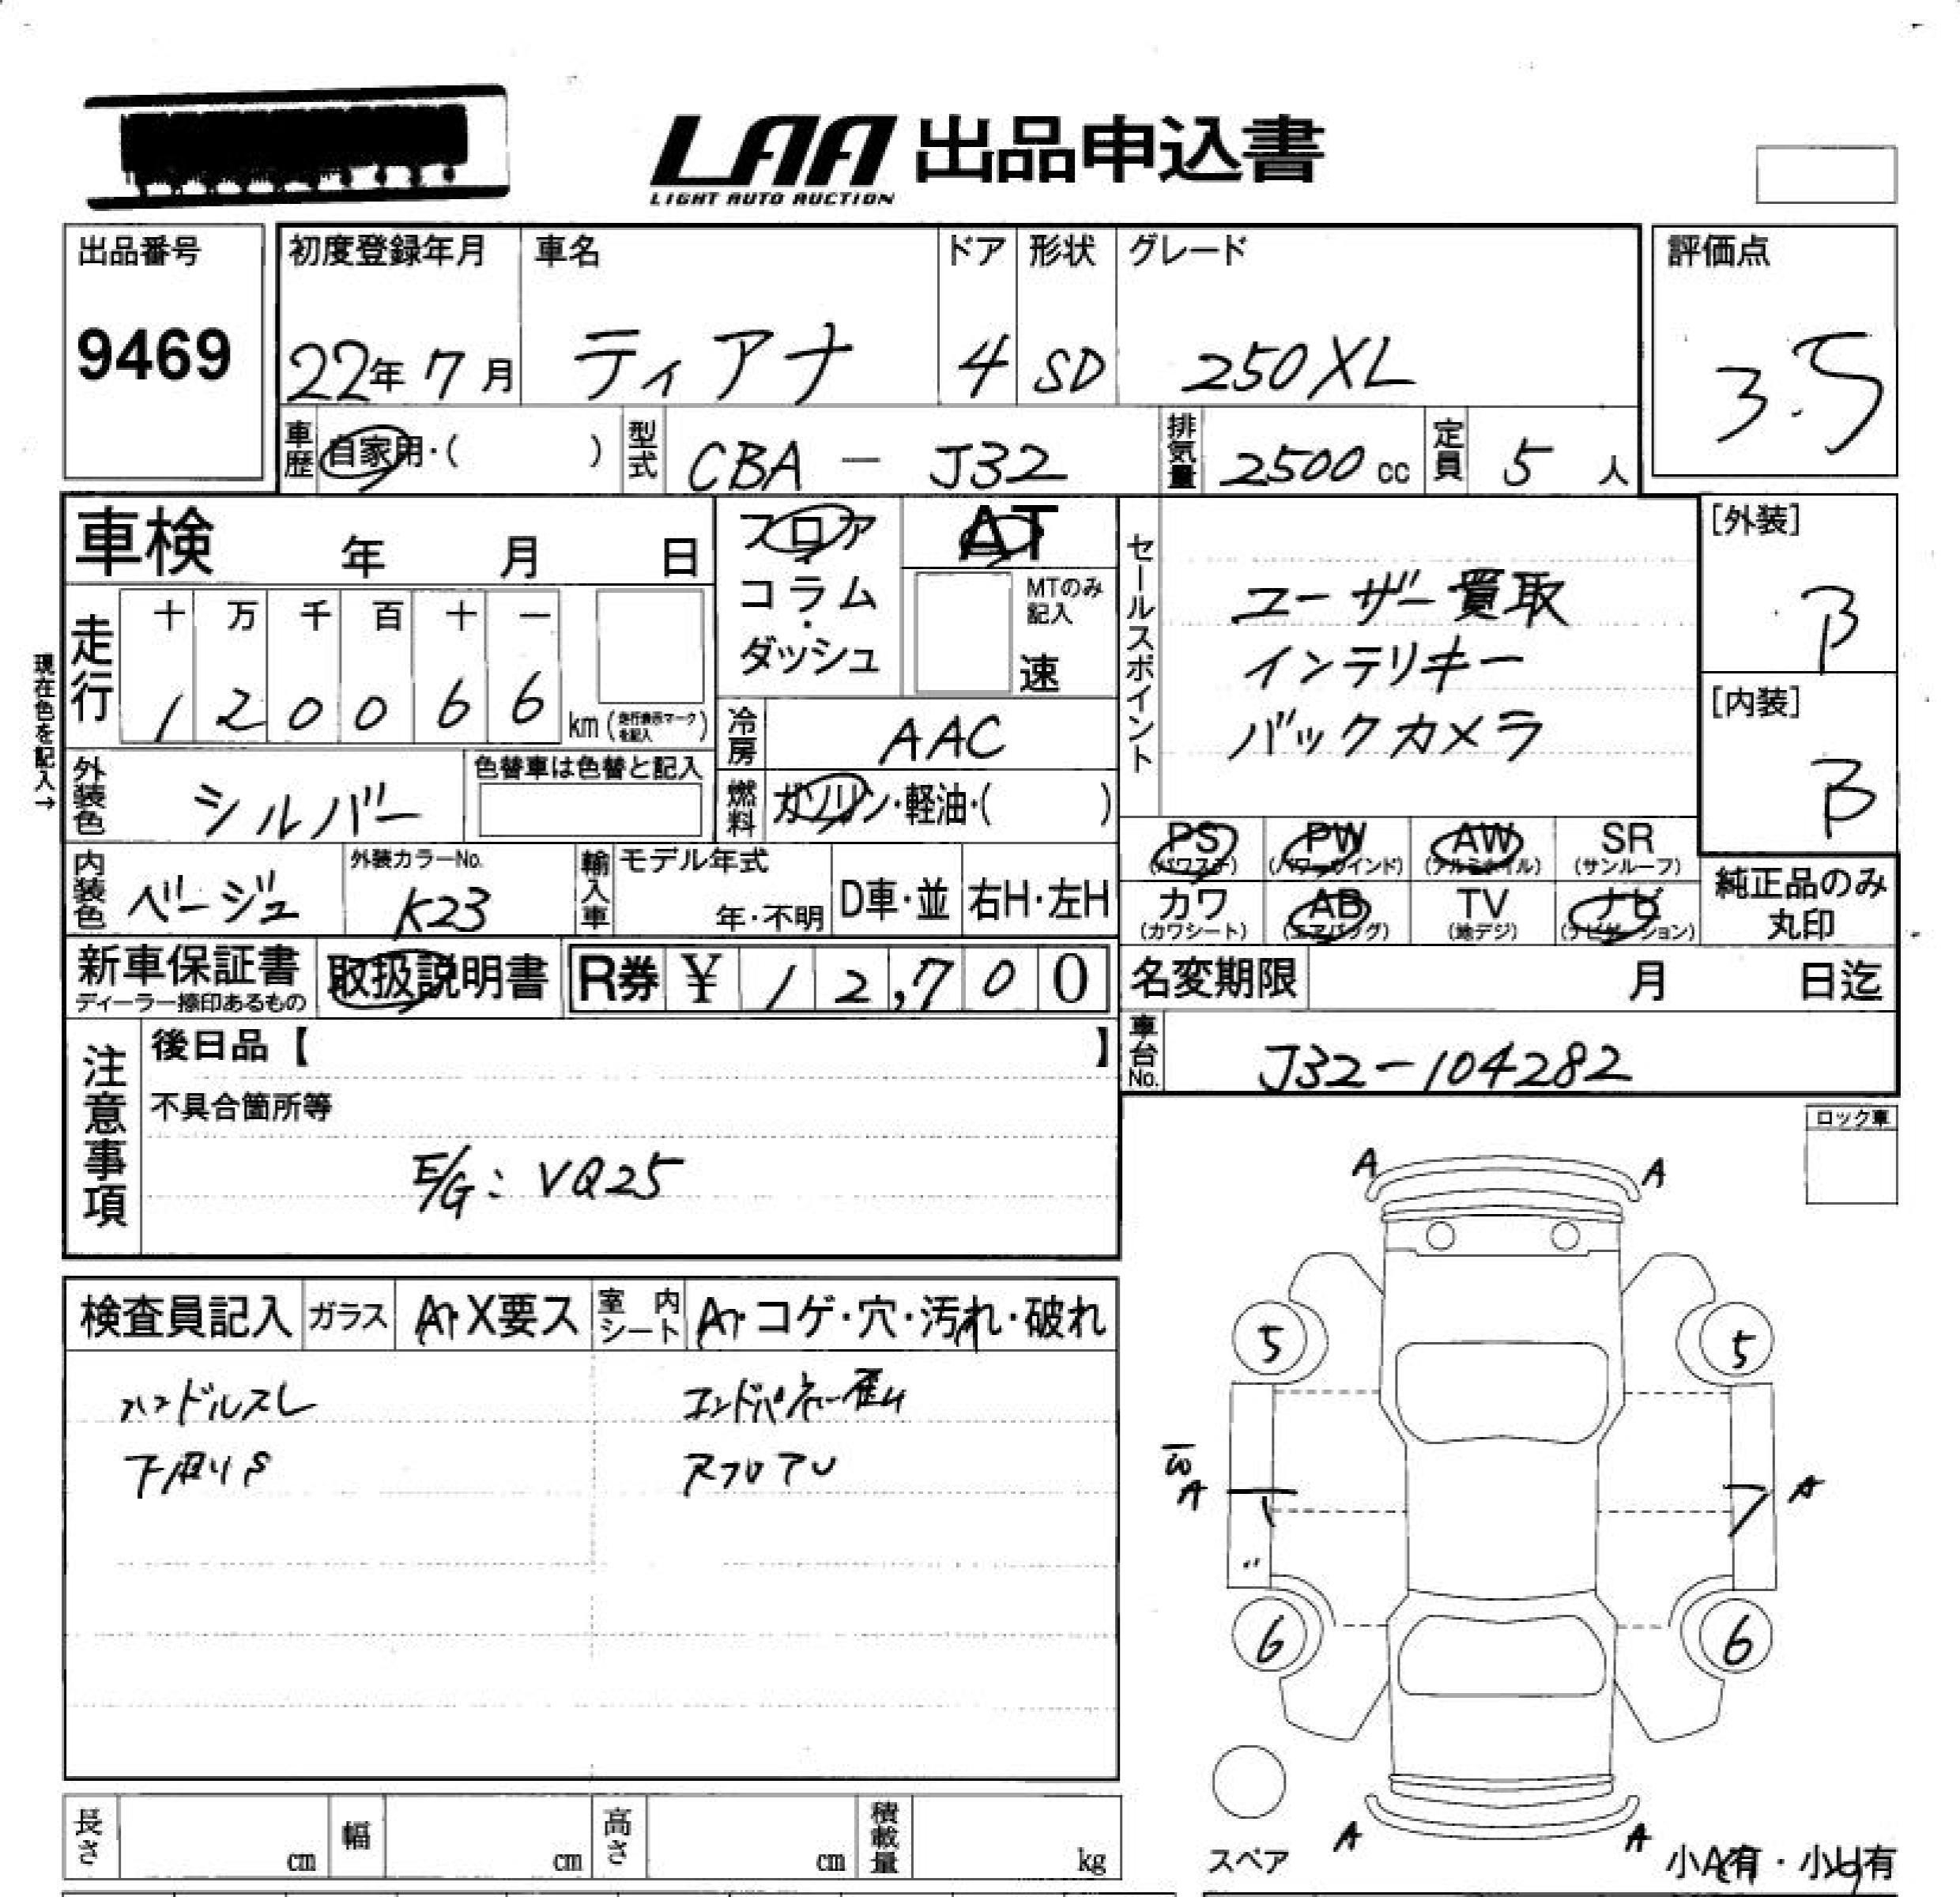 LAA 出品申込書
LIGHT AUTO AUCTION
出品番号
9469
初度登録年月
22年7月
車名
ティアナ
ドア
4
形状
SD
グレード
250XL
評価点
3.5
車歴
自家用・( )
型式
CBA - J32
排気量
2500 cc
定員
5 人
車検 年 月 日
現在色を記入→
走行
十 万 千 百 十 一
1 2 0 0 6 6
km (走行表示マークを記入)
フロア
コラム
・
ダッシュ
AT
MTのみ
記入
速
冷房
AAC
燃料
ガソリン・軽油・( )
セールスポイント
ユーザー買取
インテリキー
バックカメラ
[外装]
B
[内装]
B
外装色
シルバー
色替車は色替と記入
内装色
ベージュ
外装カラーNo.
K23
輸入車
モデル年式
年・不明
D車・並
右H・左H
PS
(パワステ)
PW
(パワーウインド)
AW
(アルミホイル)
SR
(サンルーフ)
カワ
(カワシート)
AB
(エアバッグ)
TV
(地デジ)
ナビ
(ナビゲーション)
純正品のみ
丸印
新車保証書
ディーラー捺印あるもの
取扱説明書
R券 ¥ 12,700
名変期限 月 日迄
車台No.
J32-104282
注意事項
後日品【 】
不具合箇所等
E/G: VQ25
ロック車
検査員記入
ガラス
A・X要ス
室内シート
A・コゲ・穴・汚れ・破れ
ハンドルスレ
下廻りS
A A
5 5
A A
6 6
A A
スペア
小A有・小U有
長さ cm
幅 cm
高さ cm
積載量 kg